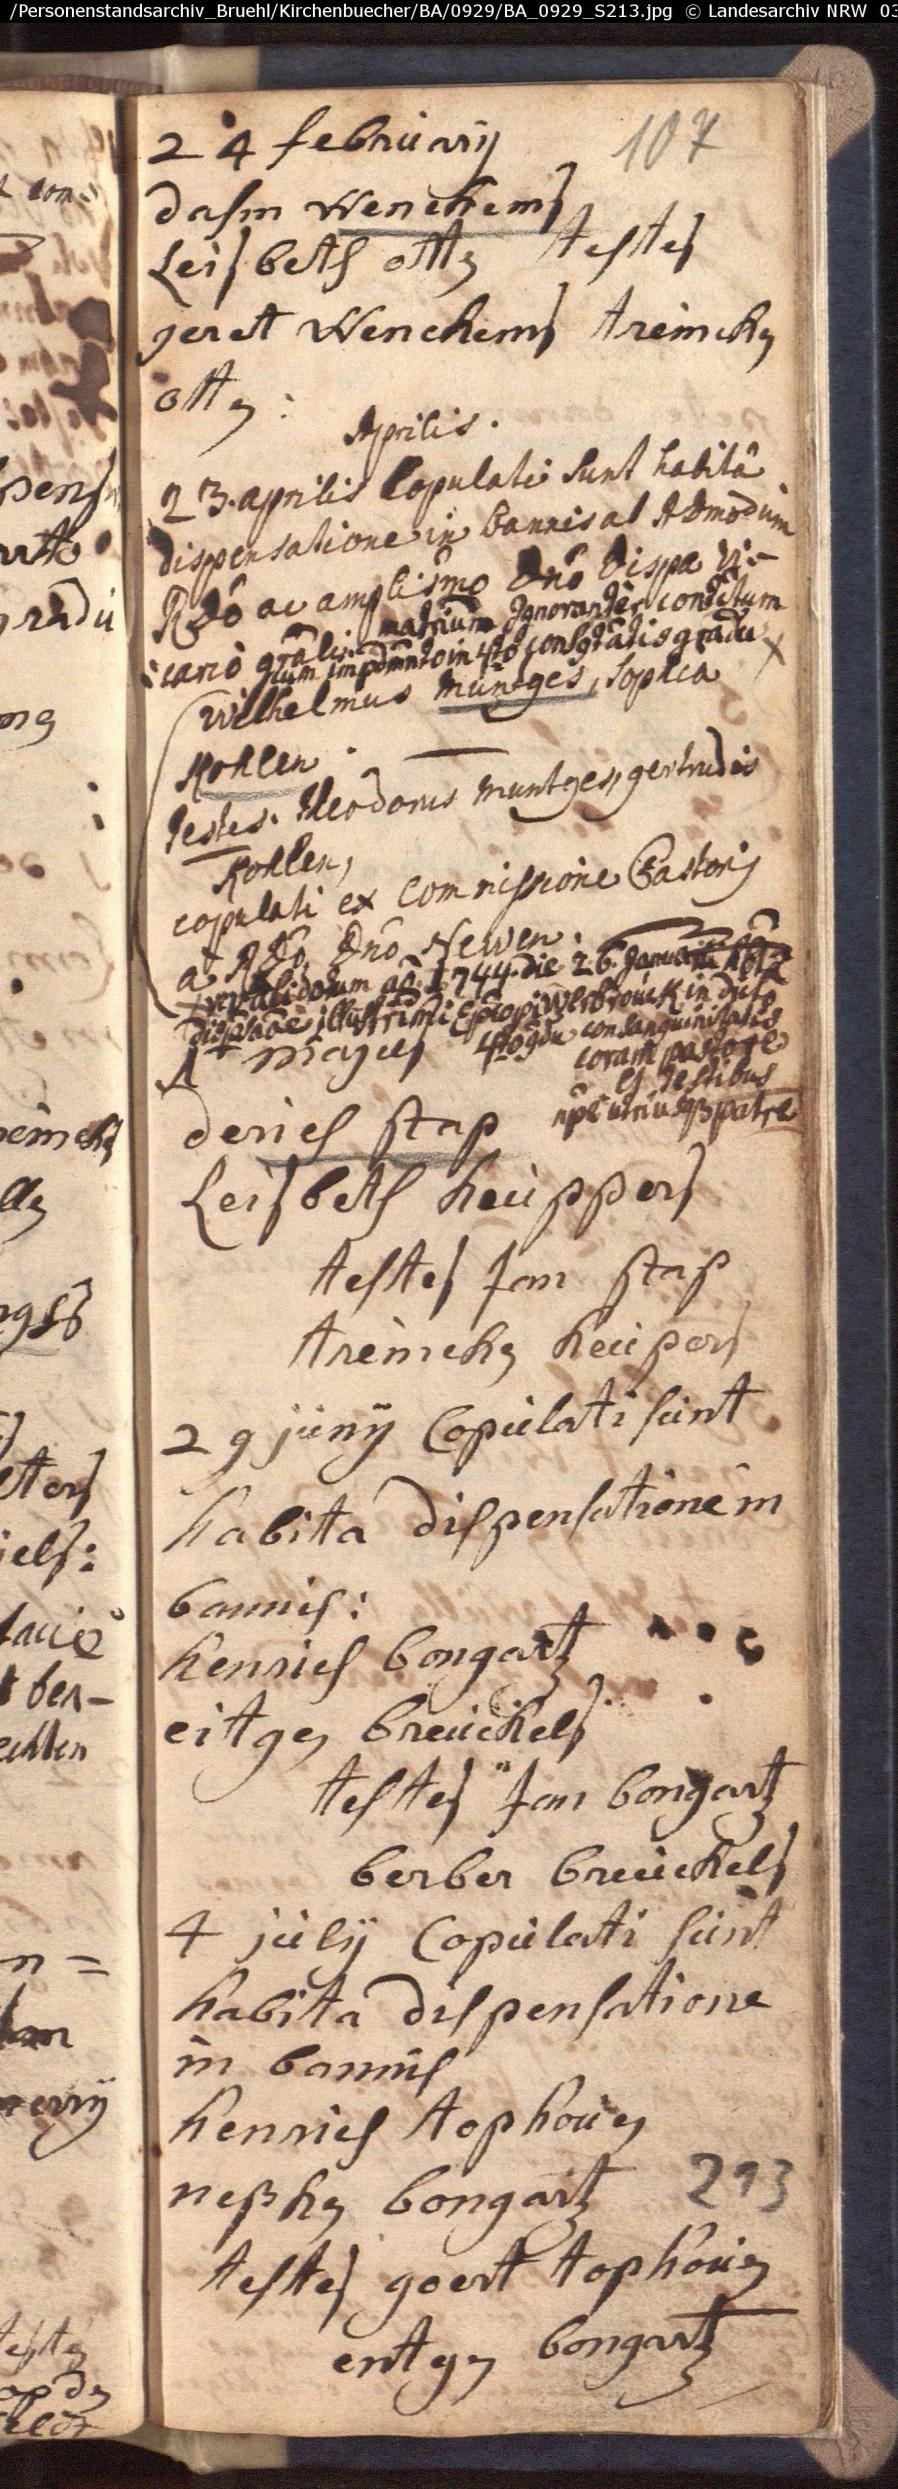 /Personenstandsarchiv_Bruehl/Kirchenbuecher/BA/0929/BA_0929_S213.jpg © Landesarchiv NRW 03
107
24 februarij
dasm Wenekems
Leisbeth otten testes
geret Wenekems treineken
otten:
Aprilis.
23. aprilis Copulati sunt habitâ
dispensatione in bannis ab Admodum
Rdo ac amplismo Dno Dispa vi-
cario gralis matrium Ignoranter contitum
cum impdmnto in 4to consgtatis gradu ×
Wilhelmus müntges, Sophia
Kohlen.
testes. theodorus muntges, gertrudis
Kohlen,
copulati ex commissione Pastoris
a Rdo Dno Newen.
× revalidatum ao. 1744. die 26. Januarii
dispsaoe illustrimi Episcopi Werbrouck in dicto
4to gdu consanguinitatis
coram pastore
et testibus
1 majus
npe utriusq patre
derich stap
Leisbeth keüppers
testes Jan stap
treineken keüpers
29 junij Copulati sunt
habita dispensatione in
bannis:
henrich bongartz
eitgen breuckels
testes Jan bongartz
berber breuckels
4 julij Copulati sunt
habita dispensatione
in bannis
henrich tophoven
nesken bongartz
213
testes goert tophoven
entgen bongartz